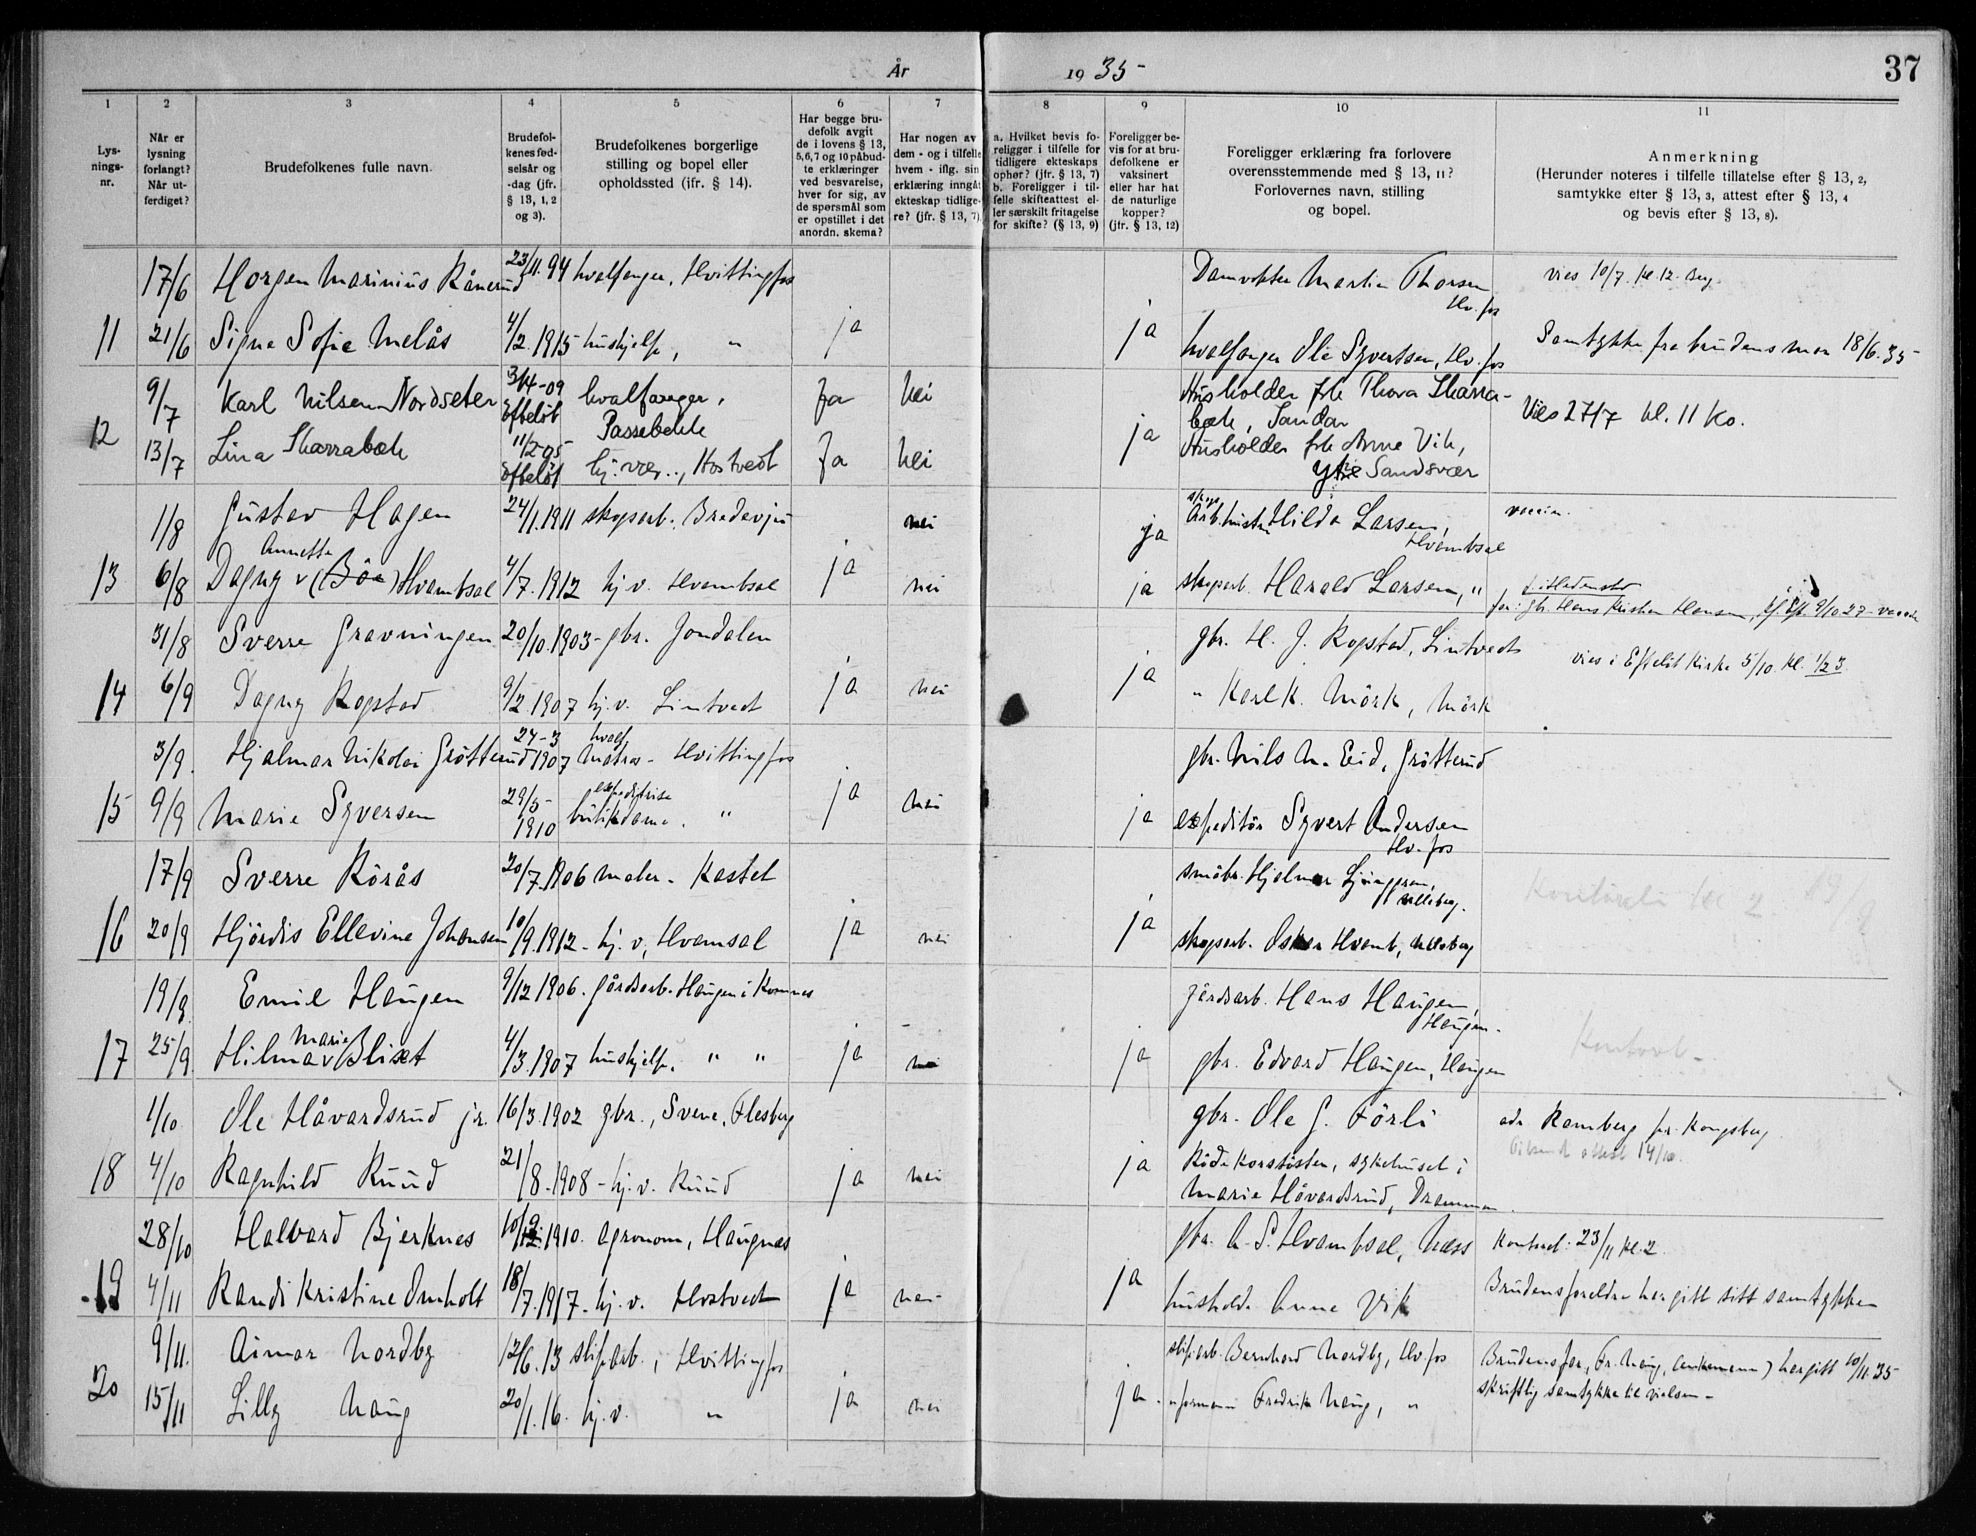 År 1935 37
1 2 3 4 5 6 7 8 9 10 11
Lys-
nings-
nr.
Når er
lysning
forlangt?
Når ut-
ferdiget?
Brudefolkenes fulle navn.
Brudefol-
kenes fød-
selsår og
-dag (jfr.
§ 13, 1, 2
og 3).
Brudefolkenes borgerlige
stilling og bopel eller
opholdssted (jfr. § 14).
Har begge bru-
defolk avgit
de i lovens § 13,
5,6,7 og 10 påbud-
te erklæringer
ved besvarelse,
hver for sig, av
de spørsmål som
er opstillet i det
anordn. skema?
Har nogen av
dem - og i tilfelle
hvem - iflg. sin
erklæring inngåt
ekteskap tidlige-
re? (jfr. § 13, 7)
a. Hvilket bevis fo-
religger i tilfelle for
tidligere ekteskaps
ophør? (jfr. § 13, 7)
b. Foreligger i til-
felle skifteattest el-
ler særskilt fritagelse
for skifte? (§ 13, 9)
Foreligger be-
vis for at bru-
defolkene er
vaksinert
eller har hat
de naturlige
kopper?
(jfr. § 13, 12)
Foreligger erklæring fra forlovere
overensstemmende med § 13, 11?
Forlovernes navn, stilling
og bopel.
Anmerkning
(Herunder noteres i tilfelle tillatelse efter § 13, 2,
samtykke efter § 13, 3, attest efter § 13, 4
og bevis efter § 13, 8).
17/6 Horgen Marinius Rånerud 23/11.94 hvalfanger, Hvittingfos Damvokter Martin Thorsen Hv.fos vies 10/7. kl. 12.
11 21/6 Signe Sofie Melås 4/2.1915 hushjelp, " ja ja hvalfanger Ole Syvertsen, Hv.fos Samtykke fra brudens mor 18/6.35
9/7 Karl Nilsen Nordseter 3/4-09 Efteløt hvalfanger, Passebekk Ja Nei Husholder frk Thora Skarra-
bæk, Sandar Vies 27/7 kl. 11 Ko.
12 13/7 Lina Skarrabæk 11/2-05 Efteløt hj.vær., Hostvedt Ja Nei ja Husholder frk Anne Vik,
Ytre Sandsvær
1/8 Gustav Hagen 24/1.1911 skogsarb. Bredevju nei ja skogs
arb. hustru Hilda Larsen, Hvambsal vaccin.
13 6/8 Dagny Annette v (Böe) Hvambsal 4/7.1912 hj.v. Hvambsal ja nei ja skogsarb. Harald Larsen, "
far: gbr. Hans Kristian Hansen,
31/8 Sverre Gravningen 20/10.1903- gbr. Jondalen gbr. H. J. Rogstad, Lintvedt vies i Efteløt Kirke 5/10. kl. 1/2 3
14 6/9 Dagny Rogstad 9/2.1907 hj.v. Lintvedt ja nei ja " Karl K. Mörk, Mörk
3/9. Hjalmar Nikolai Grötterud 27-3 1907 hvalf
Matros - Hvittingfos gbr. Nils N. Eid, Grötterud
15 9/9 Marie Syversen 29/5-1910 expeditrise
butikdame. " ja nei ja expeditör Syvert Andersen Hv.fos
17/9 Sverre Rörås 20/7.1906 maler. Kastet småbr. Hjalmar Ljunggren,
16 20/9 Hjördis Ellevine Johansen 10/9.1912 - hj.v, Hvamsal ja nei ja skogsarb. Oskar Hvamb,
19/9. Emil Haugen 9/12 1906. Gårdsarb. Haugen i Komnes Gårdsarb. Hans Haugen, Haugen.
17 25/9 Hilma Marie v Blixt 4/3.1907 hushjelp. " " ja nei ja gbr. Edvard Haugen, Haugen
1/10 Ole Håvardsrud jr. 16/3.1902 gbr., Svene, Flesberg gbr. Ole G. Förli adr. Ramberg pr. Kongsberg
18 4/10 Ragnhild Ruud 21/8.1908 - hj.v. Ruud ja nei ja Rödekorssöster, sykehuset i
Marie Håvardsrud, Drammen. attest 14/10.
28/10 Halvard Bjerknes 1910. agronom, Haugnes gbr. A. S. Hvambsal, Næss Kontrol: 23/11 kl. 2
19 4/11 Randi Kristine Omholt 18/7.1917 - hj.v. Hostvedt ja nei ja hushold. Anne Vik Brudens foreldre har gitt sitt samtykke
9/11. Aimar Nordby 12/6.13 sliparb., Hvittingfos sliparb. Bernhard Nordby, Hv.fos Brudens far, Fr. Haug, (enkemann) har gitt 10/11.35
20 15/11 Lilly Haug 20/1.16. hj.v. " ja nei ja. formann Fredrik Haug, " skriftlig samtykke til vielsen -